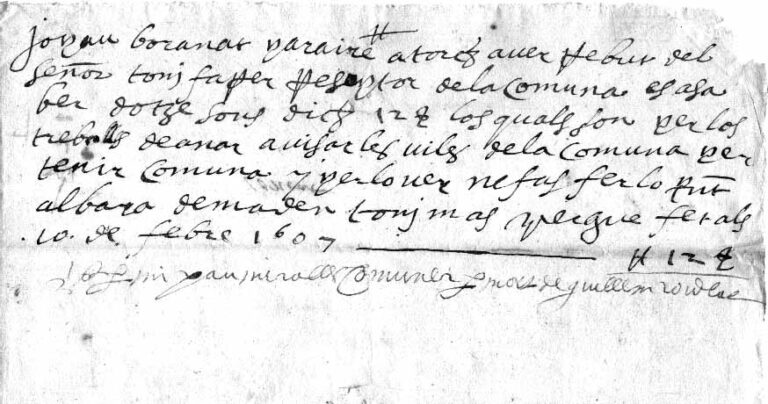 jo pau boranat paraire atorch aver rebut del
señor toni faner reseptor de la Comuna es asa
ber dotze sous dich 12 ₰ los quals son per los
treballs de anar avisar les viles de la Comuna per
tenir Comuna y per lo ver ne fas fer lo pnt
albara de ma den toni mas y pergue fet als
.10. de febre 1607 ———— # 12 ₰
per mi pau miralles Comuner per mort de guillem